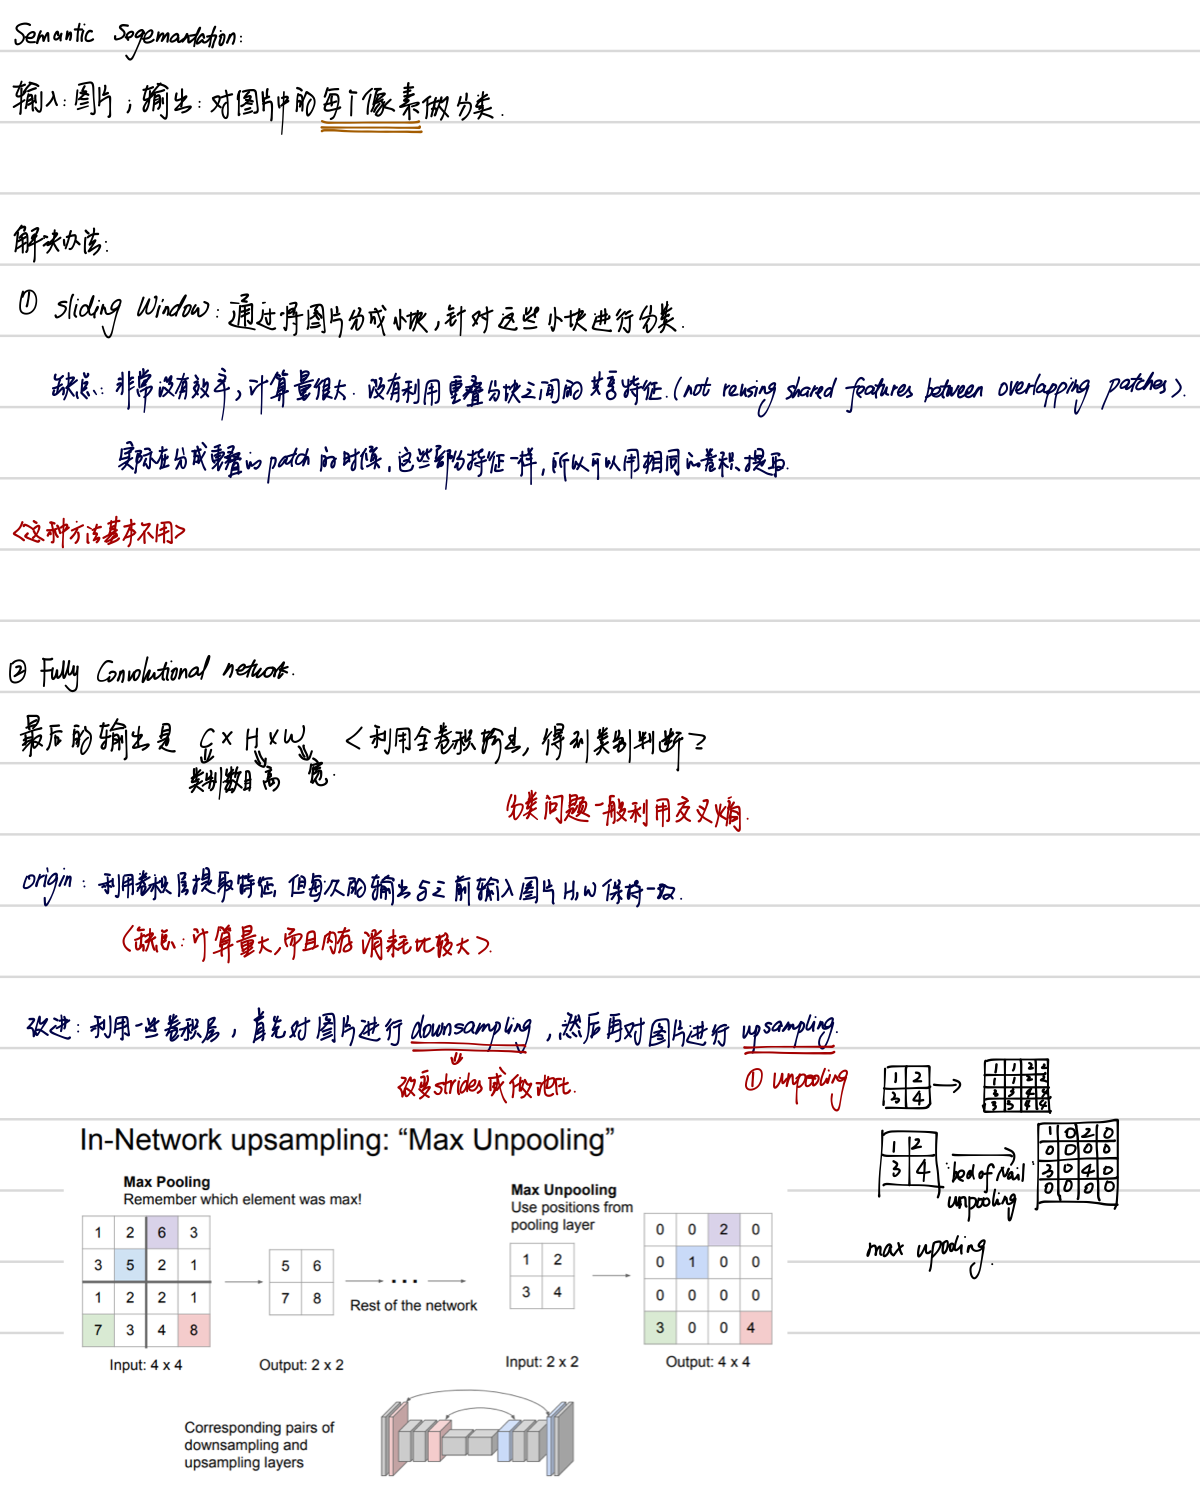 Semantic Segemandation:
输入: 图片; 输出: 对图片中的每个像素做分类.
解决办法:
① sliding Window: 通过将图片分成小块, 针对这些小块进行分类.
缺点: 非常没有效率, 计算量很大. 没有利用重叠分块之间的共享特征. (not reusing shared features between overlapping patches).
实际在分成重叠的patch的时候, 这些部分特征一样, 所以可以用相同的卷积提取.
<这种方法基本不用>
② Fully Convolutional network.
最后的输出是 C × H × W <利用全卷积输出, 得到类别判断>
类别数目 高 宽.
分类问题一般利用交叉熵.
origin: 利用卷积层提取特征, 但每次的输出与之前输入图片H,W保持一致.
(缺点: 计算量大, 而且内存消耗比较大).
改进: 利用一些卷积层, 首先对图片进行downsampling, 然后再对图片进行upsampling.
改变strides或做池化.
① unpooling
1 2
3 4
1 1 2 2
1 1 2 2
3 3 4 4
3 3 4 4
1 2
3 4
bed of Nail
unpooling
1 0 2 0
0 0 0 0
3 0 4 0
0 0 0 0
max upooling.
In-Network upsampling: “Max Unpooling”
Max Pooling
Remember which element was max!
1 2 6 3
3 5 2 1
1 2 2 1
7 3 4 8
Input: 4 x 4
5 6
7 8
Output: 2 x 2
...
Rest of the network
Max Unpooling
Use positions from
pooling layer
1 2
3 4
Input: 2 x 2
0 0 2 0
0 1 0 0
0 0 0 0
3 0 0 4
Output: 4 x 4
Corresponding pairs of
downsampling and
upsampling layers